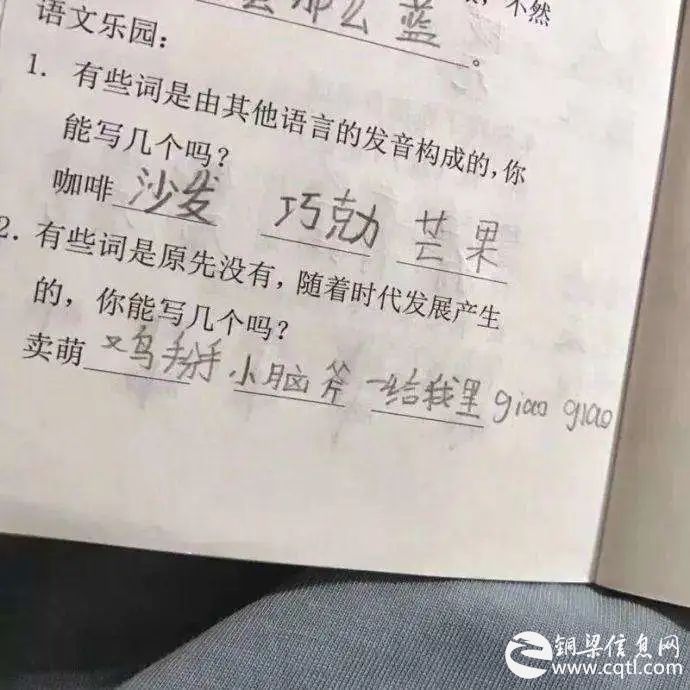 么那么蓝
，不然
语文乐园：
。
1. 有些词是由其他语言的发音构成的，你
能写几个吗？
咖啡 沙发 巧勀 芒果
2. 有些词是原先没有，随着时代发展产生
的，你能写几个吗？
卖萌 鸡掰 小脑斧 一给我里 giao giao
铜梁信息网
www.cqtl.com